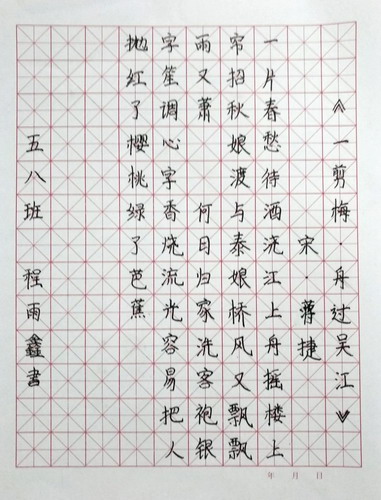 《一剪梅·舟过吴江》
宋·蒋捷
一片春愁待酒浇江上舟摇楼上
帘招秋娘渡与泰娘桥风又飘飘
雨又萧 何日归家洗客袍银
字笙调心字香烧流光容易把人
抛红了樱桃绿了芭蕉
五八班 程雨鑫书
年 月 日